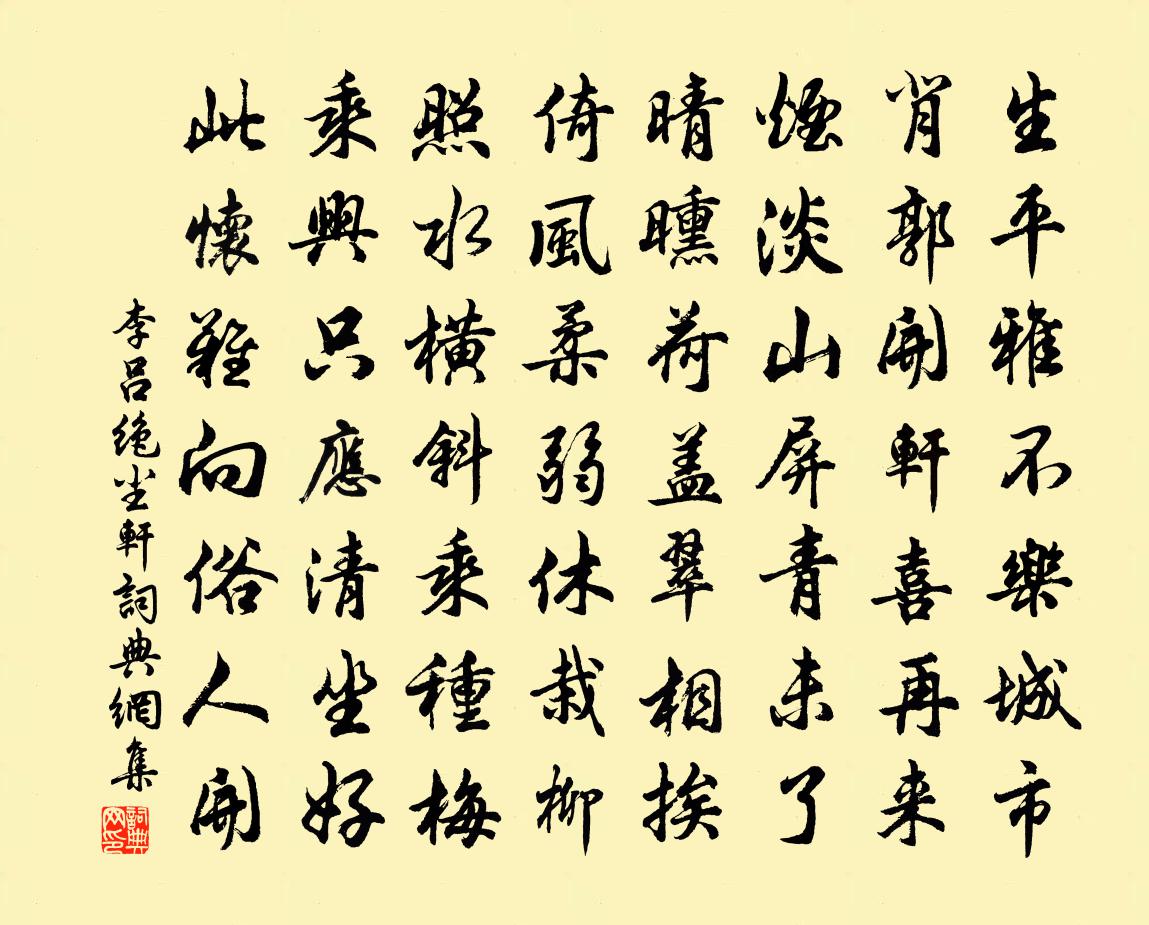 生平雅不樂城市
肖郭開軒喜再来
煙淡山屏青未了
晴曛荷盖翠相挨
倚風柔弱休栽柳
照水橫斜乘種梅
乘興只應清坐好
此懷難向俗人開
李呂絶尘軒詞典網集
詞典网印